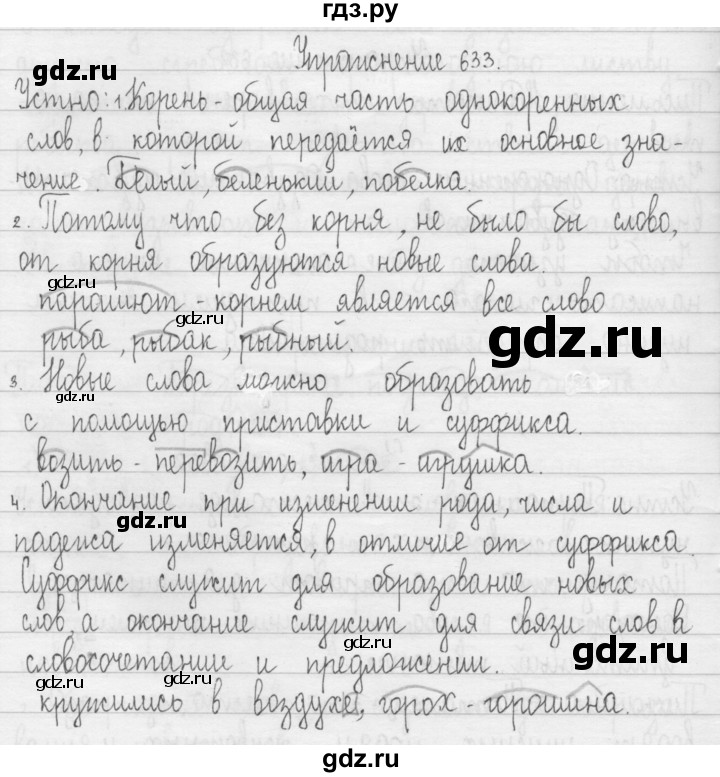 гдз.ру
Упражнение 633.
gdz.ru
Устно: 1. Корень - общая часть однокоренных
слов, в которой передаётся их основное зна-
gdz.ru
чение Белый, беленький, побелка.
2. Потому что без корня, не было бы слово,
от корня образуются новые слова.
gdz.ru
парашют - корнем является все слово
gdz.ru
рыба, рыбак, рыбный.
gdz.ru
3. Новые слова можно образовать
с помощью приставки и суффикса.
gdz.ru
возить - перевозить, игра - игрушка.
4. Окончание при изменении рода, числа и
gdz.ru
падежа изменяется, в отличие от суффикса.
Суффикс служит для образование новых
слов, а окончание служит для связи слов в
gdz.ru
словосочетании и предложении.
gdz.ru
gdz.ru
кружились в воздухе, горох - горошина.